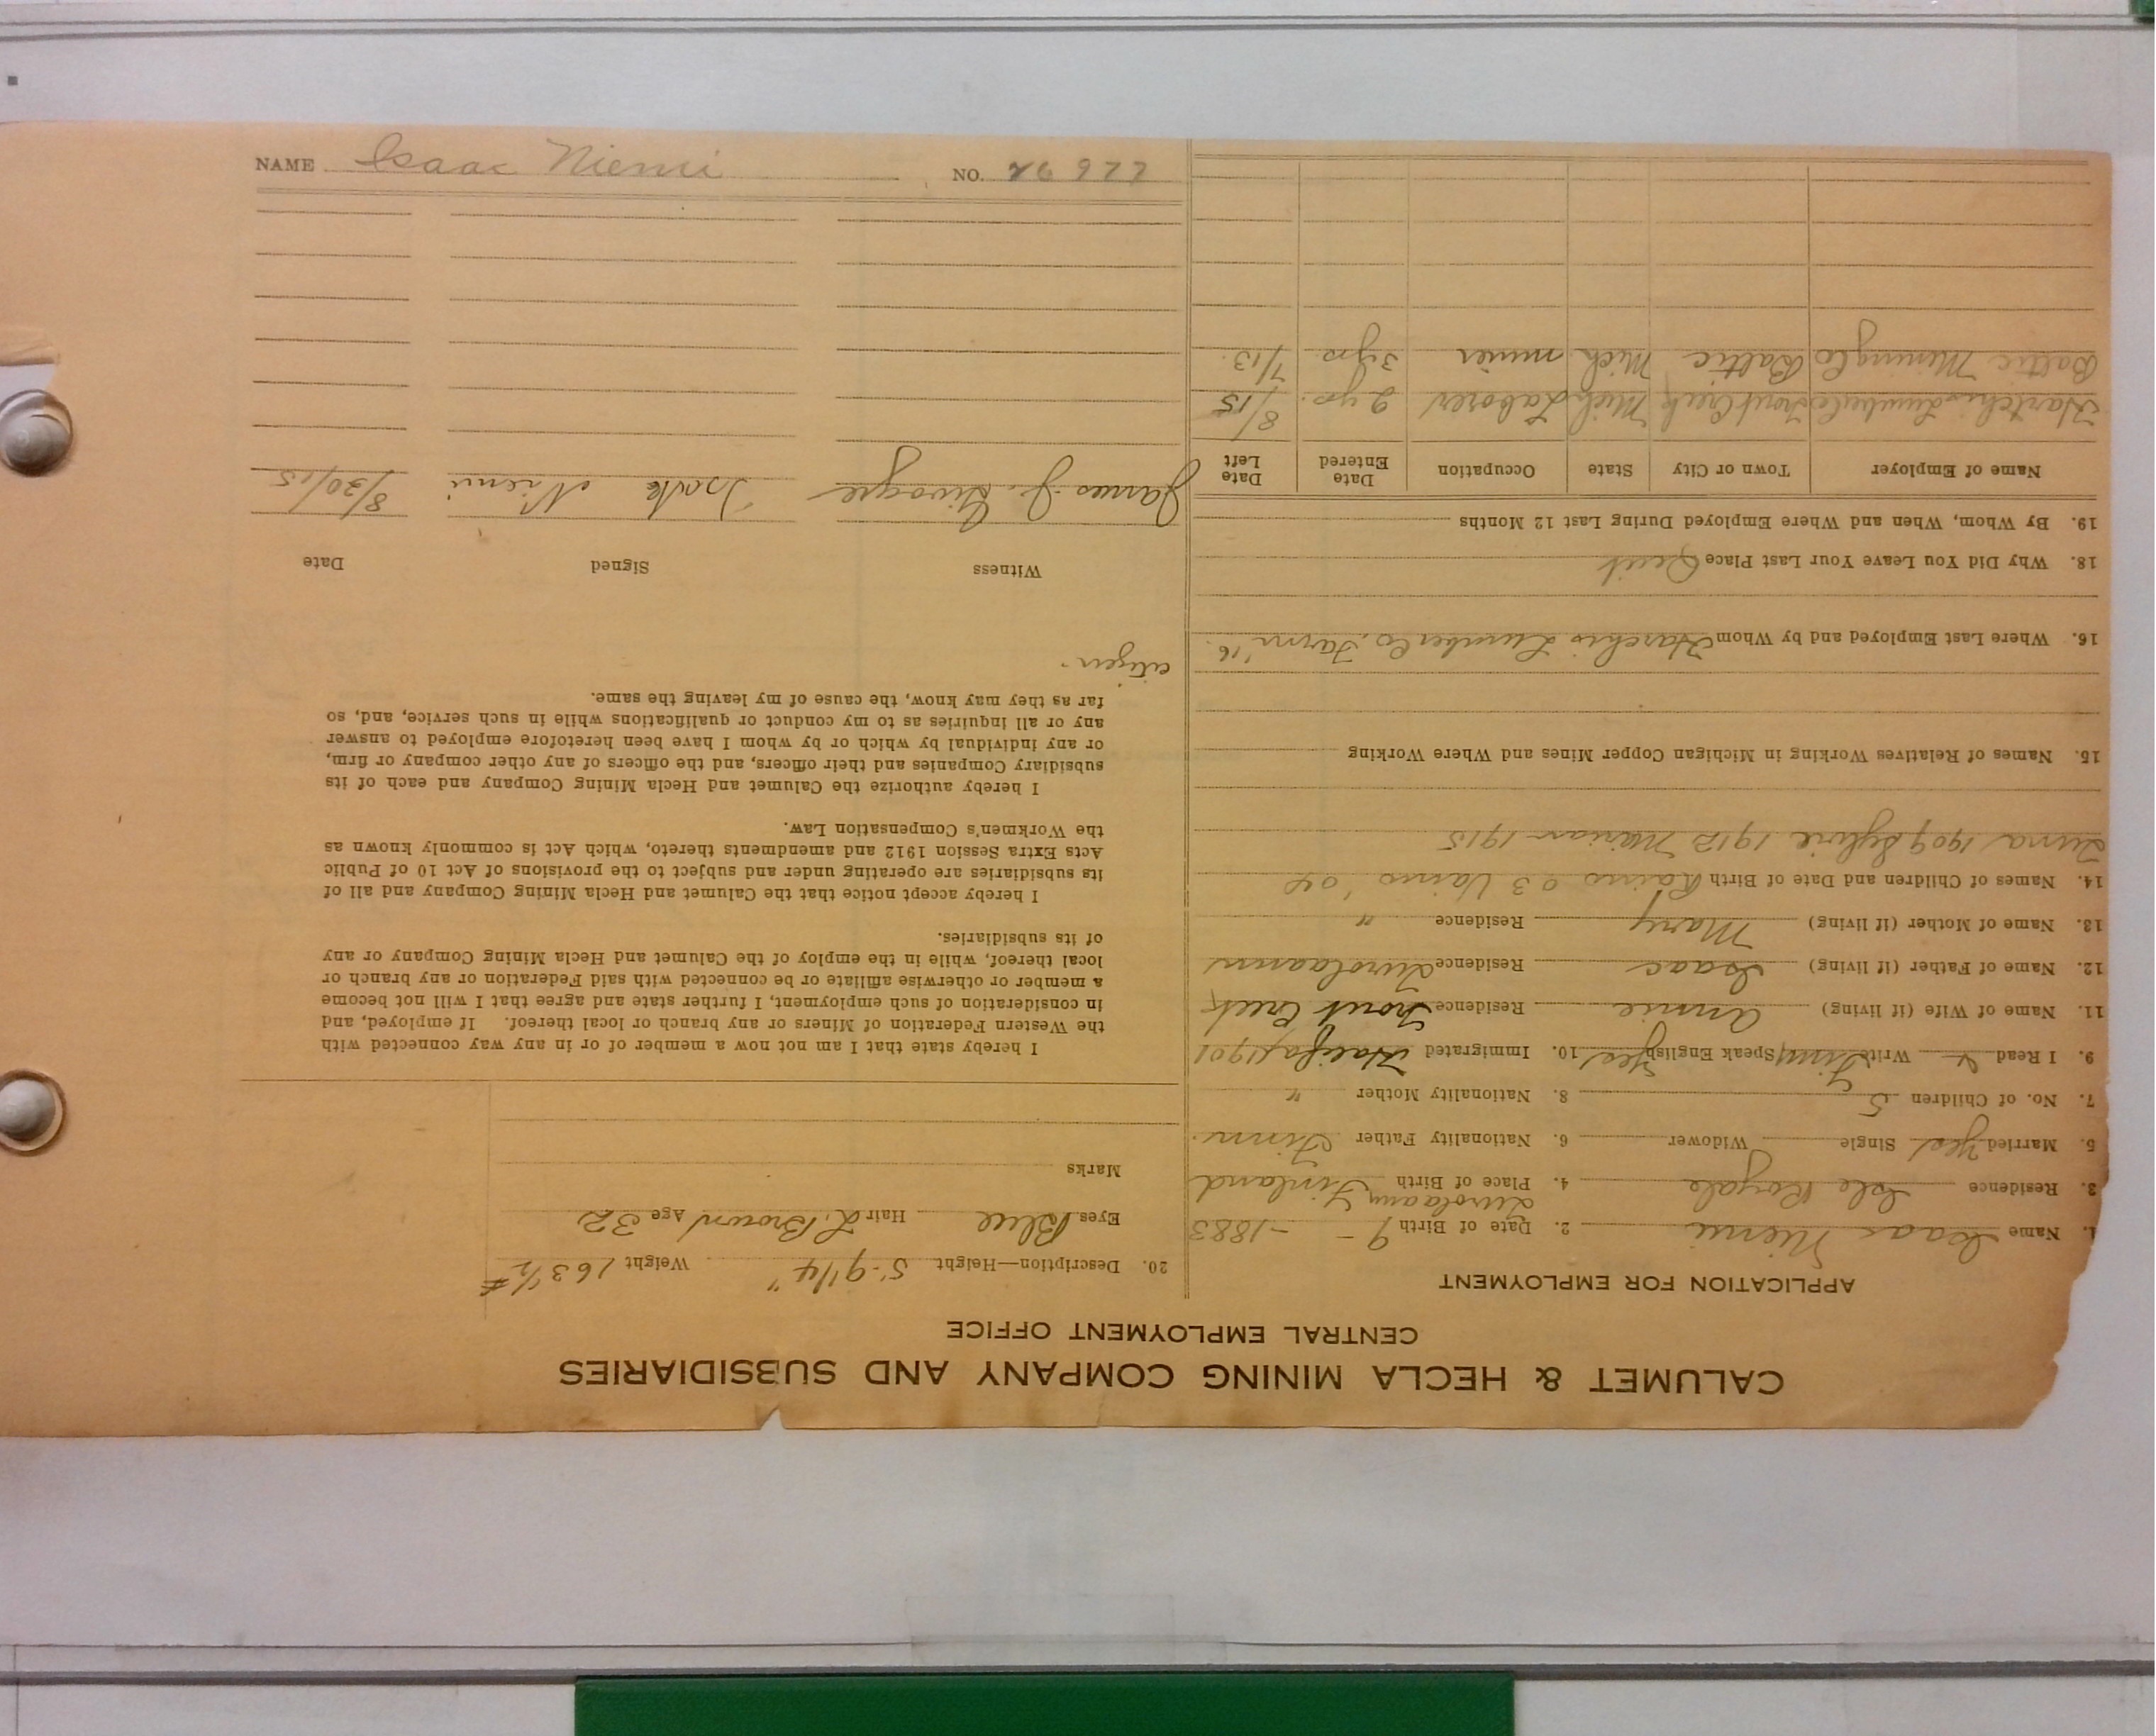 CALUMET & HECLA MINING COMPANY AND SUBSIDIARIES
CENTRAL EMPLOYMENT OFFICE
APPLICATION FOR EMPLOYMENT
1. Name Isaac Niemi 2. Date of Birth 9 - - 1883
3. Residence Isle Royale 4. Place of Birth Finland
5. Married Yes Single Widower 6. Nationality Father Finn.
7. No. of Children 5 8. Nationality Mother "
9. I Read Write Finn Speak English Yes 10. Immigrated Halifax 1901
11. Name of Wife (if living) Annie Residence Trout Creek
12. Name of Father (if living) Isaac Residence
13. Name of Mother (if living) Mary Residence "
14. Names of Children and Date of Birth Raino 03 Vaino '04
1909 Sylvie 1912 1915
15. Names of Relatives Working in Michigan Copper Mines and Where Working
16. Where Last Employed and by Whom Lumber Co. Farm '16.
18. Why Did You Leave Your Last Place Quit
19. By Whom, When and Where Employed During Last 12 Months
Name of Employer Town or City State Occupation Date Entered Date Left
Trout Creek Mich Laborer 2 yrs. 8/15
Baltic Mining Co Baltic Mich miner 3 yrs 7/13.
20. Description—Height 5'-9 1/4" Weight 163 1/2 #
Eyes Blue Hair L. Brown Age 32
Marks
I hereby state that I am not now a member of or in any way connected with
the Western Federation of Miners or any branch or local thereof. If employed, and
in consideration of such employment, I further state and agree that I will not become
a member or otherwise affiliate or be connected with said Federation or any branch or
local thereof, while in the employ of the Calumet and Hecla Mining Company or any
of its subsidiaries.
I hereby accept notice that the Calumet and Hecla Mining Company and all of
its subsidiaries are operating under and subject to the provisions of Act 10 of Public
Acts Extra Session 1912 and amendments thereto, which Act is commonly known as
the Workmen's Compensation Law.
I hereby authorize the Calumet and Hecla Mining Company and each of its
subsidiary Companies and their officers, and the officers of any other company or firm,
or any individual by which or by whom I have been heretofore employed to answer
any or all inquiries as to my conduct or qualifications while in such service, and, so
far as they may know, the cause of my leaving the same.
citizen.
Witness Signed Date
James J. Isak Niemi 8/30/15
NAME Isaac Niemi NO. 26977